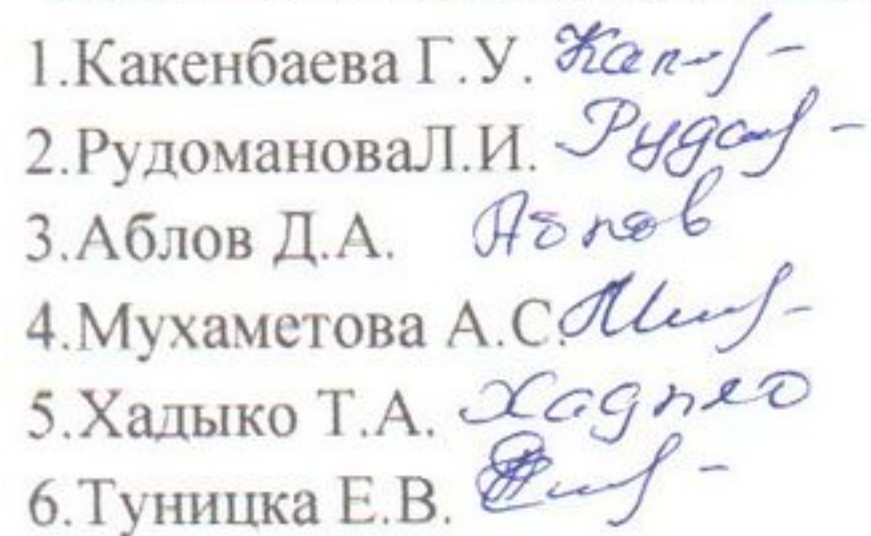 1.Какенбаева Г.У.
2.РудомановаЛ.И.
3.Аблов Д.А. Аблов
4.Мухаметова А.С.
5.Хадыко Т.А. Хадыко
6.Туницка Е.В.